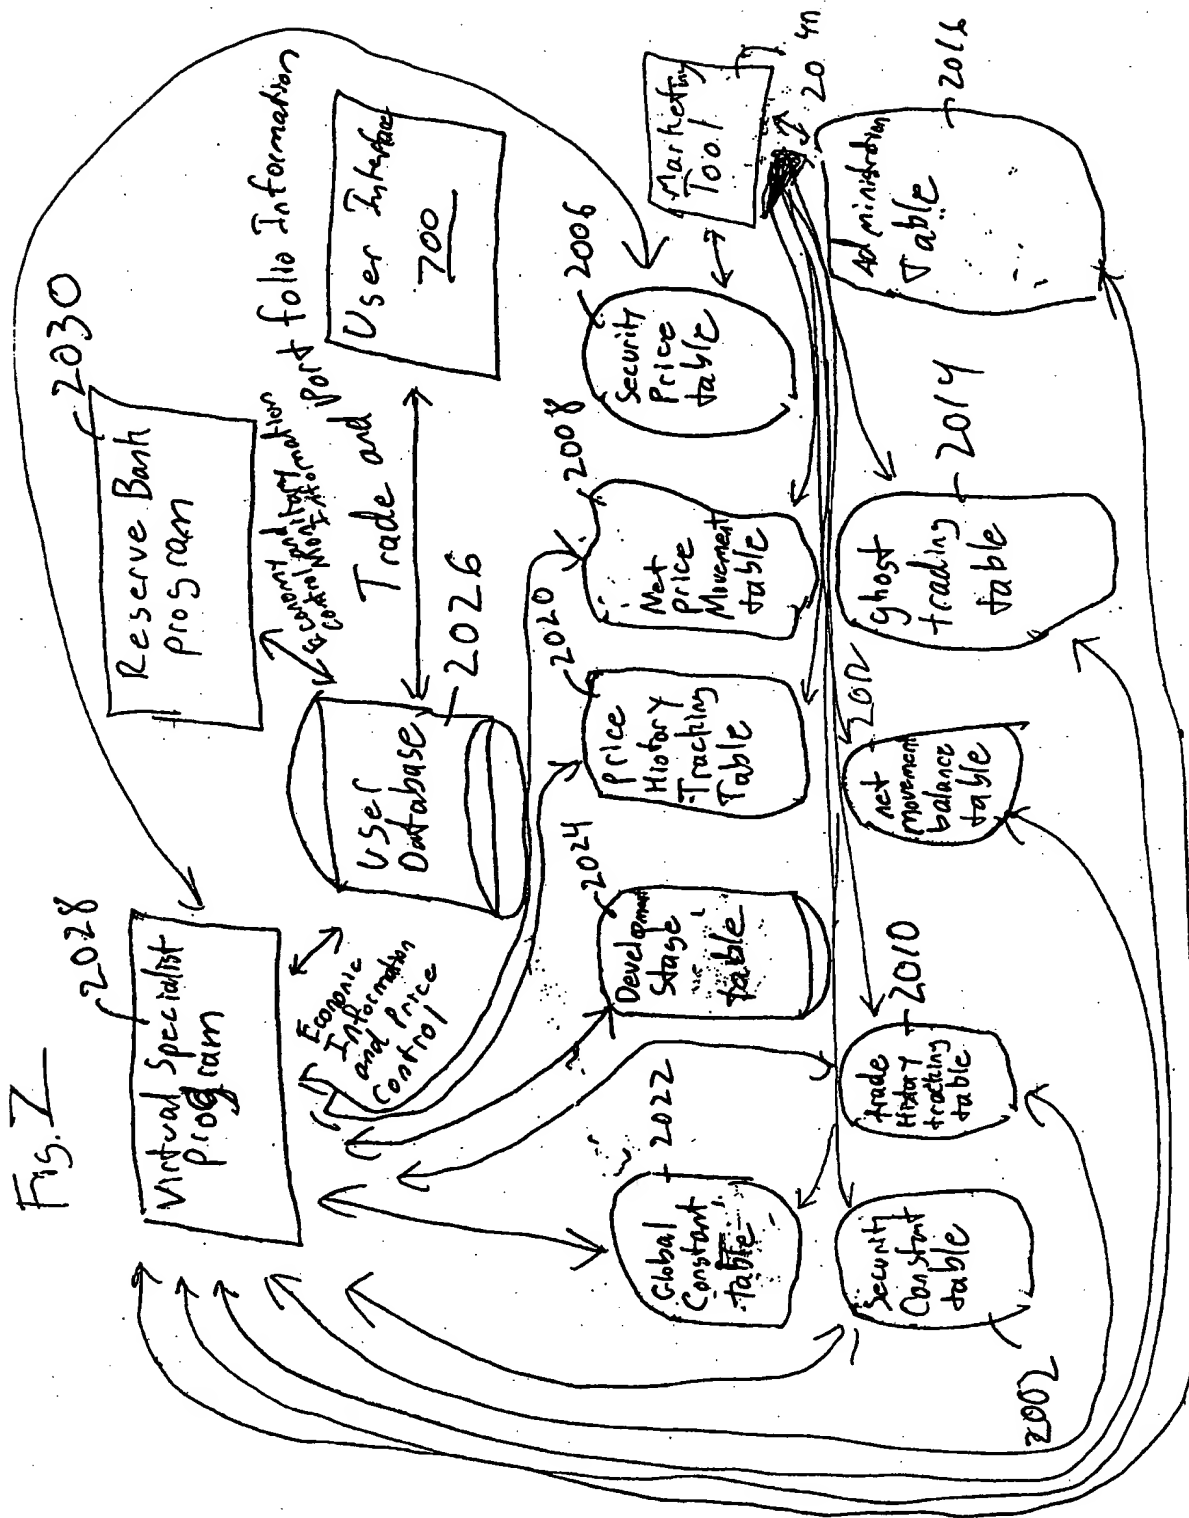 Fig. Z
2028
Virtual Specialist
Program
2030
Reserve Bank
program
Economic
Information
and Price
Control
User
Database
2026
Economy and
Control
Information
Trade and Portfolio Information
User Interface
700
2022
Global
Constant
table
2024
Development
Stage
table
2020
Price
History
Tracking
Table
2008
Net
Price
Movement
table
2006
Security
Price
table
Marketing
Tool
2002
Security
Constant
table
2010
trade
History
tracking
table
2012
net
movement
balance
table
2014
ghost
trading
table
2016
Administration
Table